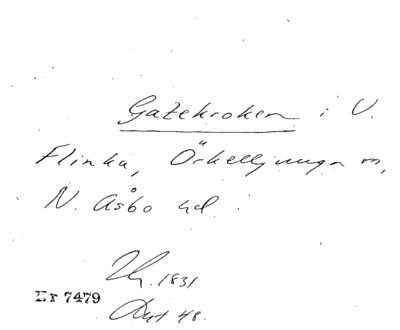 Gatekroken i V.
Flinka, Örkelljunga sn,
N. Åsbo hd.
1831
Er 7479
48.